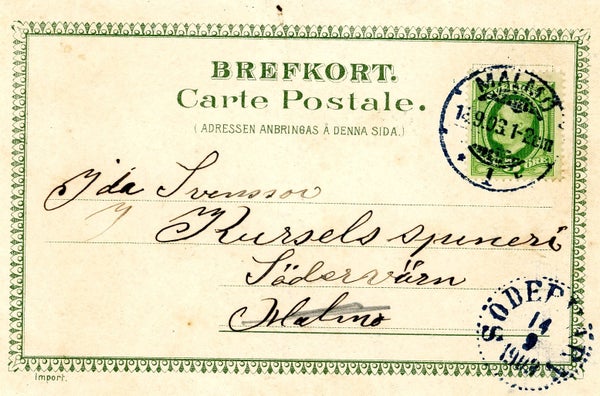 BREFKORT.
Carte Postale.
( ADRESSEN ANBRINGAS Å DENNA SIDA. )
MALMÖ
1
ÖRE
Ida Svensson
Kursels spineri
Södervärn
Malmö
SÖDERVÄRN
14
9
Import.